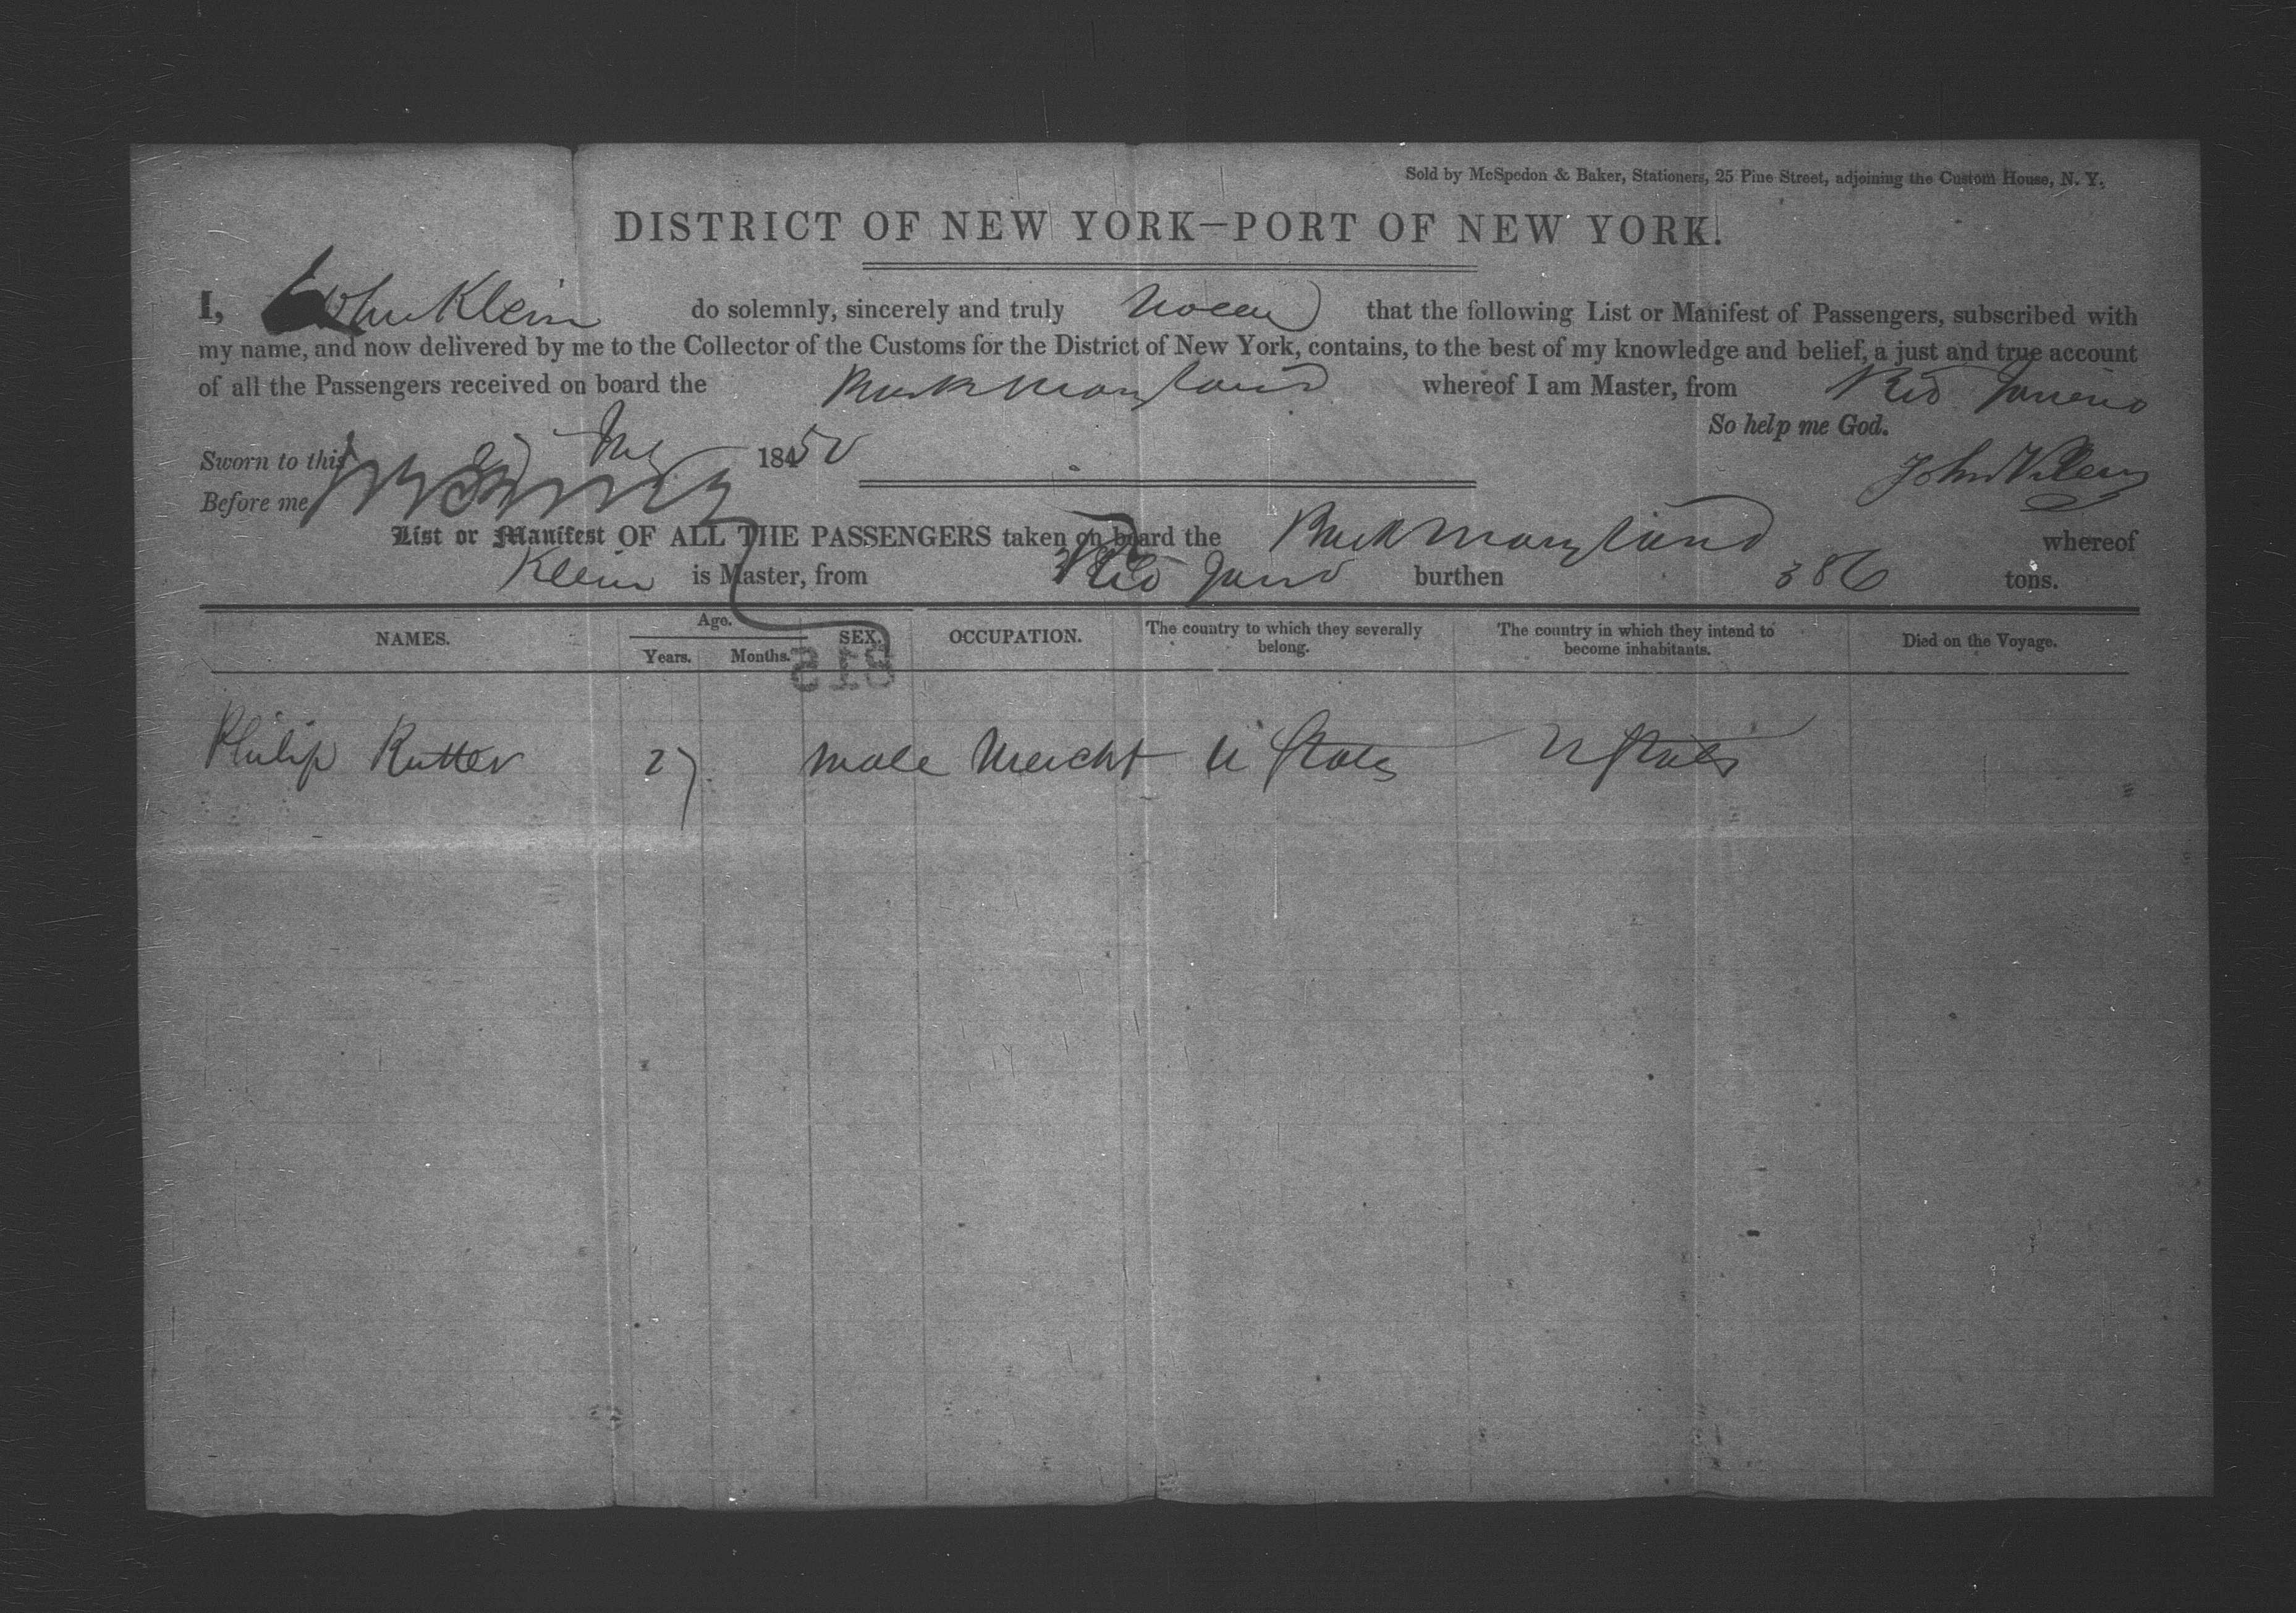 Sold by McSpedon & Baker, Stationers, 25 Pine Street, adjoining the Custom House, N. Y.
DISTRICT OF NEW YORK—PORT OF NEW YORK.
I, John Klein do solemnly, sincerely and truly that the following List or Manifest of Passengers, subscribed with
my name, and now delivered by me to the Collector of the Customs for the District of New York, contains, to the best of my knowledge and belief, a just and true account
of all the Passengers received on board the Bark Maryland whereof I am Master, from Rio Janeiro
So help me God.
Sworn to this 1850
John Klein
Before me
List or Manifest OF ALL THE PASSENGERS taken on board the Bark Maryland whereof
Klein is Master, from Rio burthen 386 tons.
NAMES. Age. Years. Months. SEX. OCCUPATION. The country to which they severally belong. The country in which they intend to become inhabitants. Died on the Voyage.
Philip Rutter 27 male Mercht U States U States